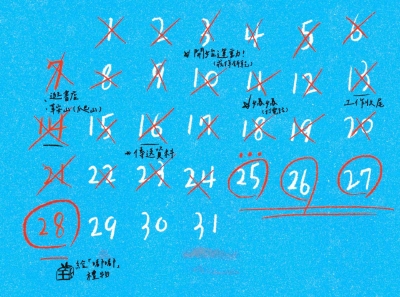 1 2 3 4 5 6
開始運動!
7 8 9 10 11 12 13
逛書店
工作伙尾
14 15 16 17 18 19 20
傳送資料
21 22 23 24 25 26 27
28 29 30 31
禮物